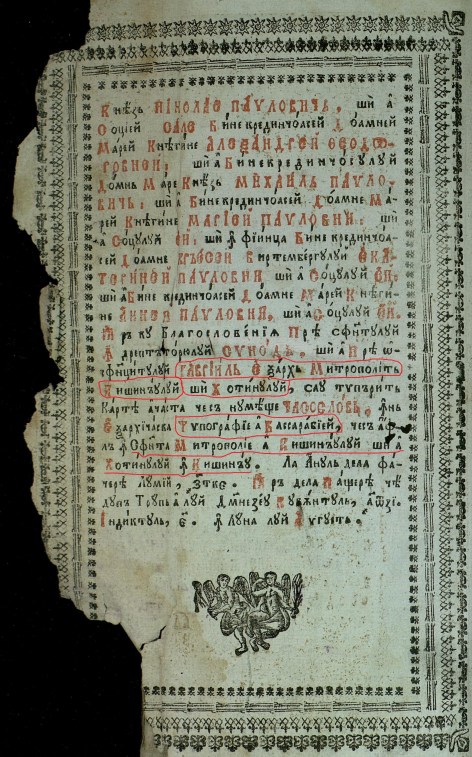 Кнѣзь Нїколає Паѵловичь, ши а̂
Соцїей Сале Бине крединчоасей Доамней
Марей Кнѣгине Алеѯандрей Ѳеодѡ-
ровней: ши а̂ Бине крединчосулуй
Домнь Маре Кнѣзь Михаиль Паѵло-
вичь: ши а̂ Бине крединчоасей Доамне Ма-
рей Кнѣгине Марїей Паѵловни: ши
а̂ Соцулуй Ей: ши ꙟ фїинца Бине крединчоа-
сей Доамне Виртембергулуй Ека-
теринѣй Паѵловнии ши а̂ Соцулуй Ей:
ши а̂ Бине крединчоасей Доамне Марей Кнѣги-
не Анней Паѵловнии, ши а̂ Соцулуй Ей.
Благословенїа Прѣ Сфинтулуй
Ꙟдрептъторюлуй Сѵнодь, ши а̂ Прѣ ѡ-
сфинцитулуй Гаврїиль Еѯархь Митрополить
Кишинъулуй ши Хотинулуй, сау тупърить
Карте ачаста чесе нумѣще Часословь, ꙟнь
Еѯархїчаска Тѵпографїе а̂ Бассарабїей, чесъ а̂ф-
лъ ꙟ Сфинта Митрополїе а̂ Кишинъулуй ши а̂
Хотинулуй ꙟ Кишинъу. Ла Ануль дела фа-
чере Лумїй, ҂зтке. Ꙗръ дела Нащерѣ чѣ
дупъ Трупь а̂ луй Дмнезеу Кувѫнтуль, ҂аѡзі.
Індиктуль, е. ꙟ луна луй Аѵгусть.